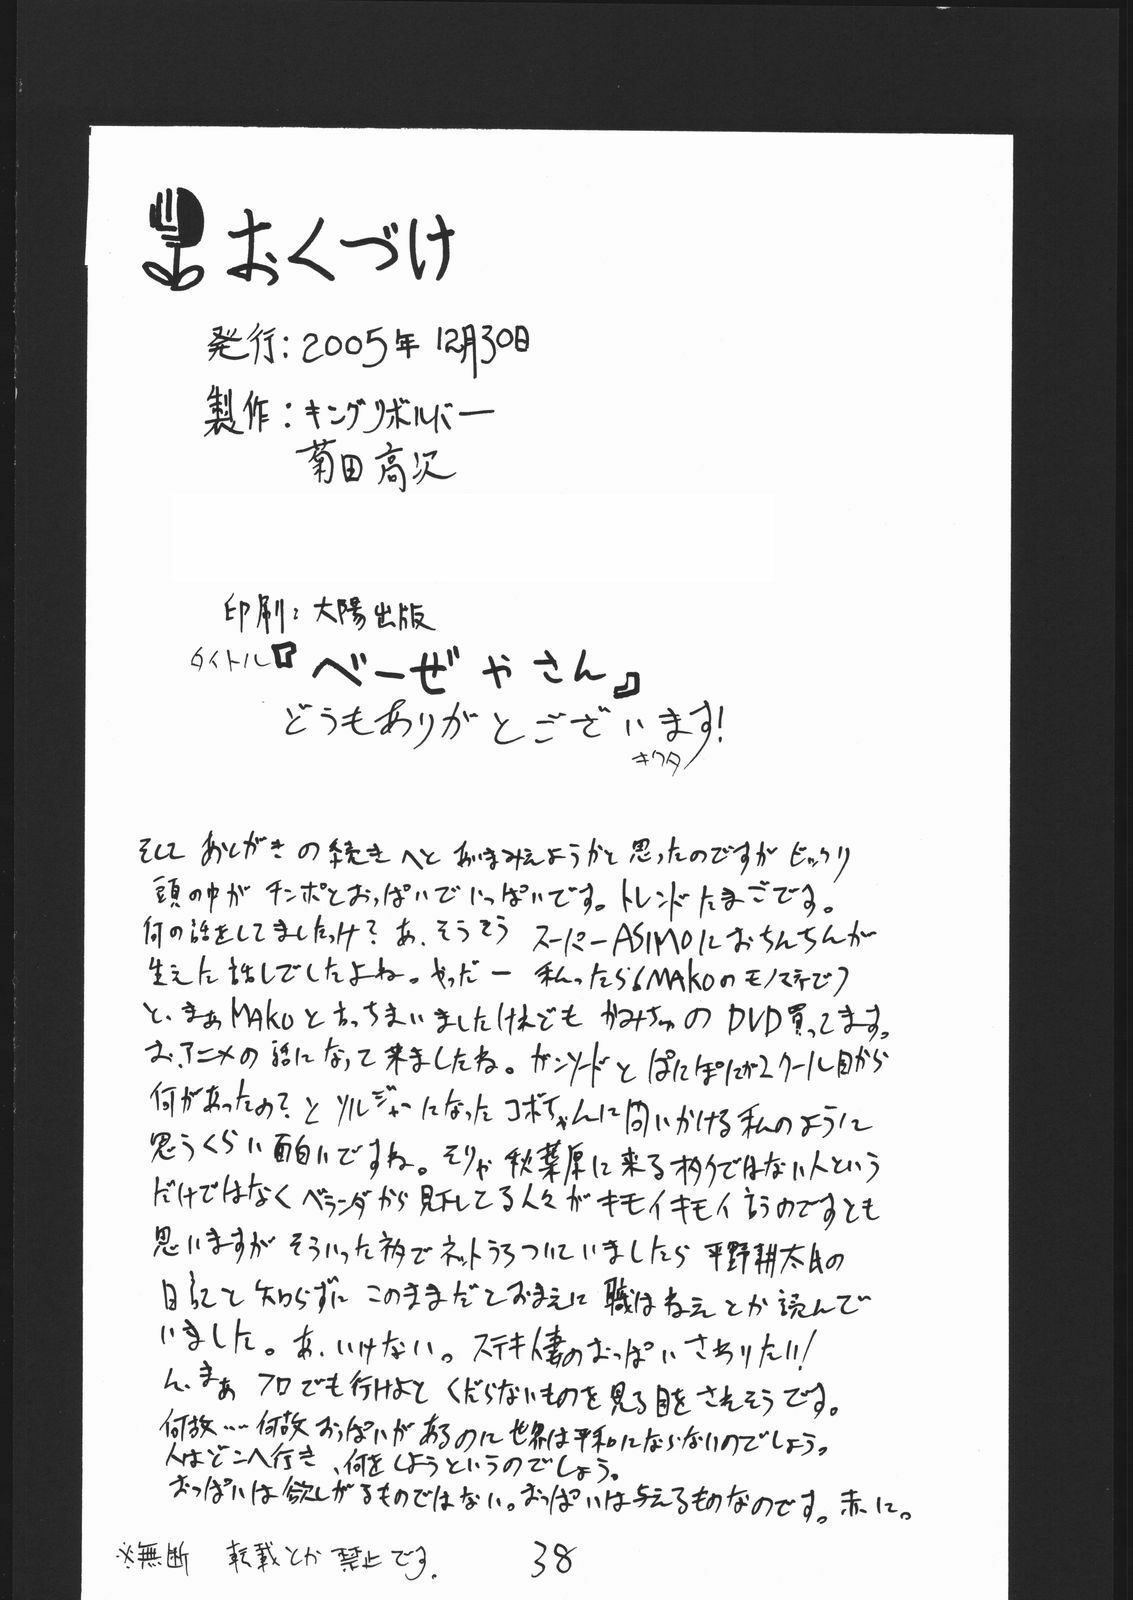 おくづけ
発行：2005年12月30日
製作：キングリボルバー
菊田高次
印刷：大陽出版
タイトル『べーぜやさん』
どうもありがとございます！
キクタ
そして あとがきの続きへと あいまみえようかと思ったのですが ビックリ
頭の中が チンポとおっぱいでいっぱいです。トレンドたまごです。
何の話をしてましたっけ？あ、そうそう スーパーASIMOにおちんちんが
生えた話しでしたよね。やっだー 私ったら MAKOのモノマネで
と、まぁMAKOと言っちまいましたけれども かみちゅのDVD買ってます。
お、アニメの話になって来ましたね。ガンソードとぱにぽにが2クール目から
何があったの？と ソルジャーになったコボちゃんに問いかける私のように
思うくらい面白いですね。そりゃ秋葉原に来るオタクではない人という
だけではなくベランダから見下してる人々がキモイキモイ言うのですとも
思いますが そういった訳でネットうろついていましたら 平野耕太氏の
日記と知らずに このままだとおまえに職はねぇとか読んで
いました。あ、いけない。ステキ人妻のおっぱいさわりたい！
ん、まぁ プロでも行けよと くだらないものを見る目をされそうです。
何故…何故おっぱいがあるのに世界は平和にならないのでしょう。
人はどこへ行き、何をしようというのでしょう。
おっぱいは欲しがるものではない。おっぱいは与えるものなのです。赤に。
※無断 転載とか禁止です。
38